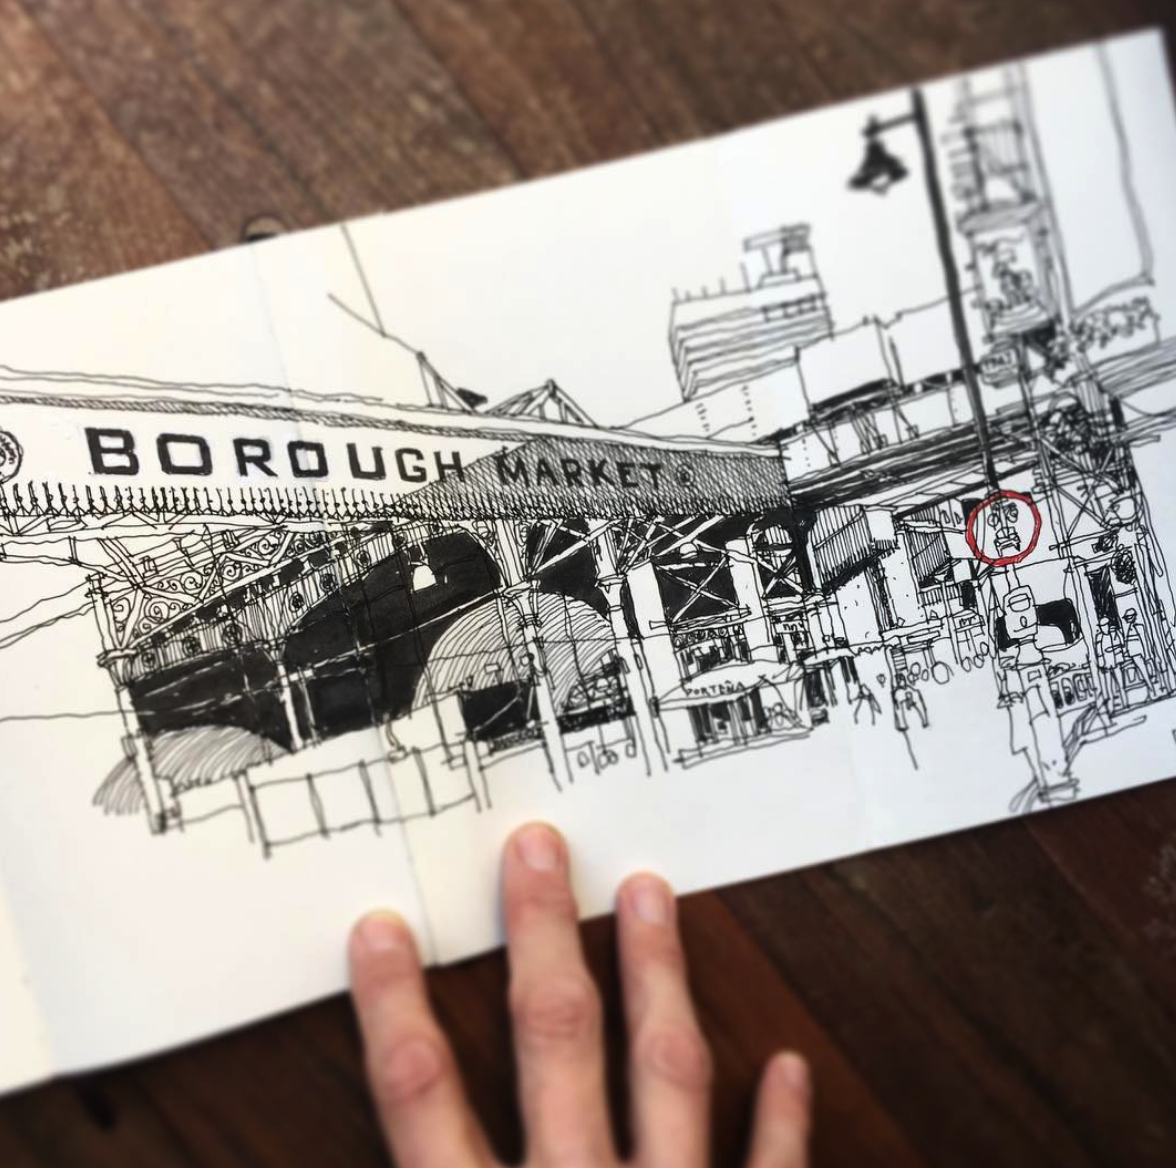 BOROUGH MARKET
PORTEÑA